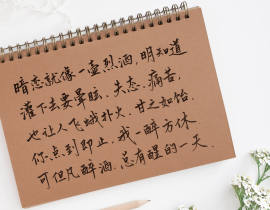 暗恋就像一壶烈酒,明知道
灌下去要晕眩、失态、痛苦,
也让人飞蛾扑火、甘之如饴。
你点到即止,我一醉方休
可但凡醉酒,总有醒的一天.